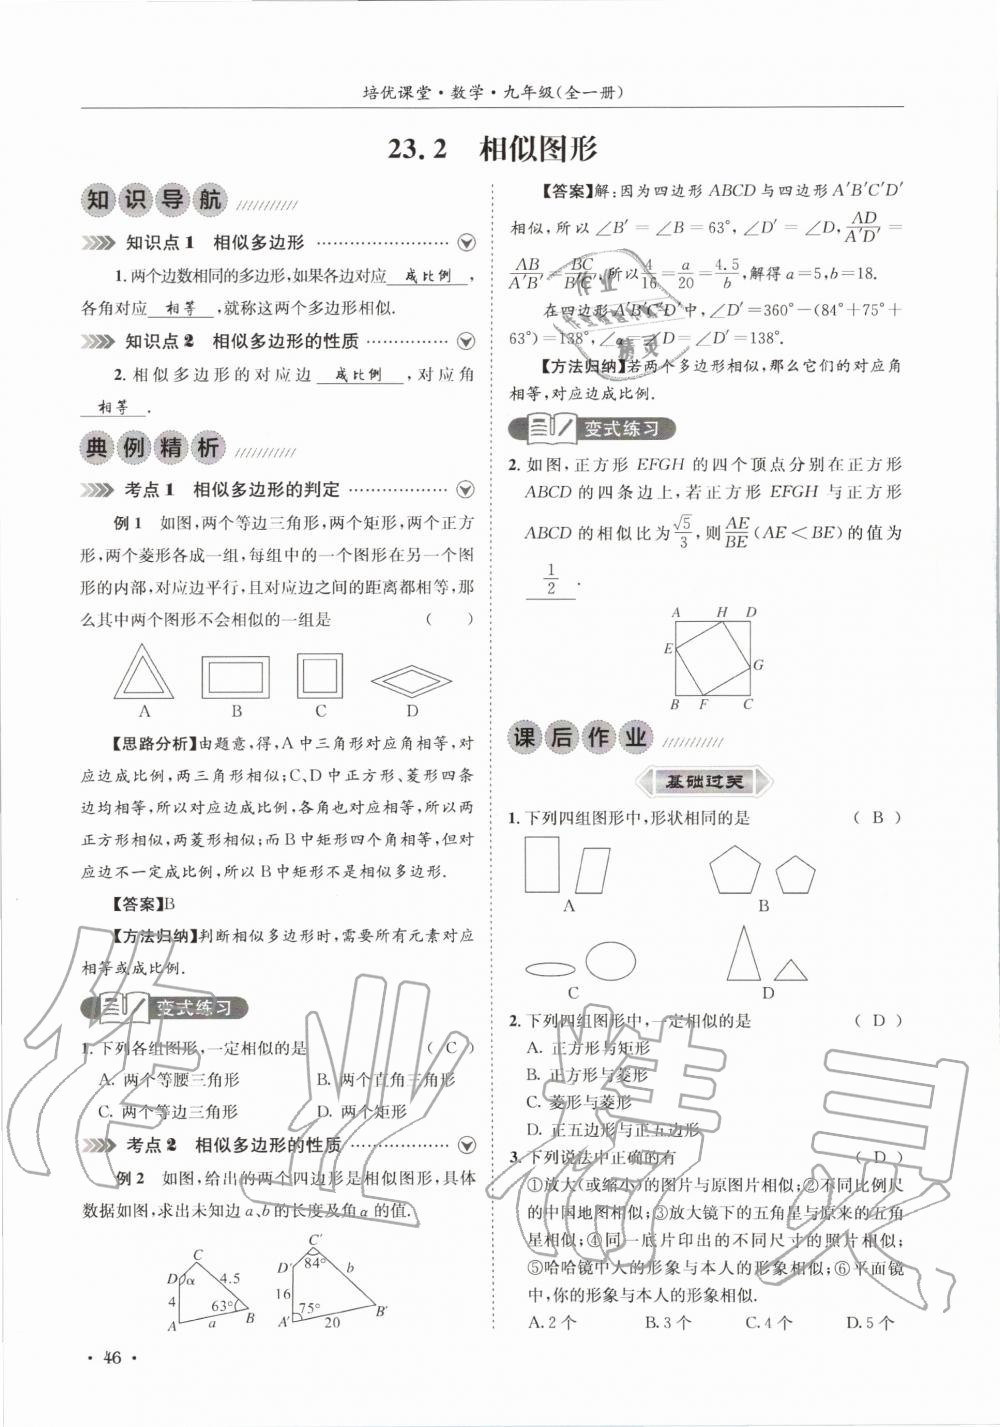 培优课堂·数学·九年级(全一册)
23.2 相似图形
知识导航
知识点1 相似多边形
1.两个边数相同的多边形,如果各边对应 成比例 ,
各角对应 相等 ,就称这两个多边形相似.
知识点2 相似多边形的性质
2.相似多边形的对应边 成比例 ,对应角
相等 .
典例精析
考点1 相似多边形的判定
例1 如图,两个等边三角形,两个矩形,两个正方
形,两个菱形各成一组,每组中的一个图形在另一个图
形的内部,对应边平行,且对应边之间的距离都相等,那
么其中两个图形不会相似的一组是 ( )
A B C D
【思路分析】由题意,得,A中三角形对应角相等,对
应边成比例,两三角形相似;C、D中正方形、菱形四条
边均相等,所以对应边成比例,各角也对应相等,所以两
正方形相似,两菱形相似;而B中矩形四个角相等,但对
应边不一定成比例,所以B中矩形不是相似多边形.
【答案】B
【方法归纳】判断相似多边形时,需要所有元素对应
相等或成比例.
变式练习
1.下列各组图形,一定相似的是 ( C )
A. 两个等腰三角形 B. 两个直角三角形
C. 两个等边三角形 D. 两个矩形
考点2 相似多边形的性质
例2 如图,给出的两个四边形是相似图形,具体
数据如图,求出未知边a、b的长度及角α的值.
C
D α 4.5
4 63°
A a B
C′
D′ 84° b
16
75°
A′ 20 B′
·46·
【答案】解:因为四边形ABCD与四边形A′B′C′D′
相似,所以∠B′=∠B=63°,∠D′=∠D,AD/A′D′=
AB/A′B′=BC/B′C′,所以4/16=a/20=4.5/b,解得a=5,b=18.
在四边形A′B′C′D′中,∠D′=360°-(84°+75°+
63°)=138°,∠α=∠D=∠D′=138°.
【方法归纳】若两个多边形相似,那么它们的对应角
相等,对应边成比例.
变式练习
2.如图,正方形EFGH的四个顶点分别在正方形
ABCD的四条边上,若正方形EFGH与正方形
ABCD的相似比为√5/3,则AE/BE(AE<BE)的值为
1/2 .
A H D
E
G
B F C
课后作业
基础过关
1.下列四组图形中,形状相同的是 ( B )
A B
C D
2.下列四组图形中,一定相似的是 ( D )
A. 正方形与矩形
B. 正方形与菱形
C. 菱形与菱形
D. 正五边形与正五边形
3.下列说法中正确的有 ( D )
①放大(或缩小)的图片与原图片相似;②不同比例尺
的中国地图相似;③放大镜下的五角星与原来的五角
星相似;④同一底片印出的不同尺寸的照片相似;
⑤哈哈镜中人的形象与本人的形象相似;⑥平面镜
中,你的形象与本人的形象相似.
A.2个 B.3个 C.4个 D.5个
作业精灵